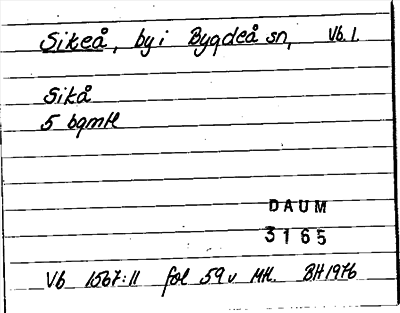 Sikeå, by i Bygdeå sn, Vb. l.
Sikå
5 bgmtl
DAUM
3165
Vb 1567:11 fol 59v Mtl. BH 1976